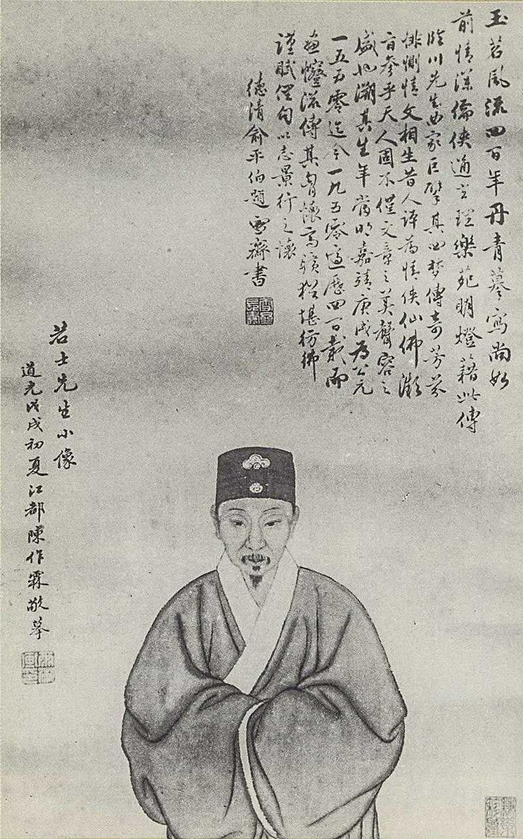 玉茗風流四百年丹青摹寫尚如
前情深儒俠通玄理樂苑明燈藉此傳
臨川先生曲家巨擘其四夢傳奇芳芬
悱惻情文相生昔人評為情俠仙佛漸
言參乎天人固不僅文章之美聲容之
盛也溯其生年當明嘉靖庚戌為公元
一五五零迄今一九五零適歷四百載而
畫幨滋傳其胷懷高曠猶堪彷彿
謹賦俚句以志景行之懷
德清俞平伯題 雪齋書
若士先生小像
道光戊戌初夏江都陳作霖敬摹